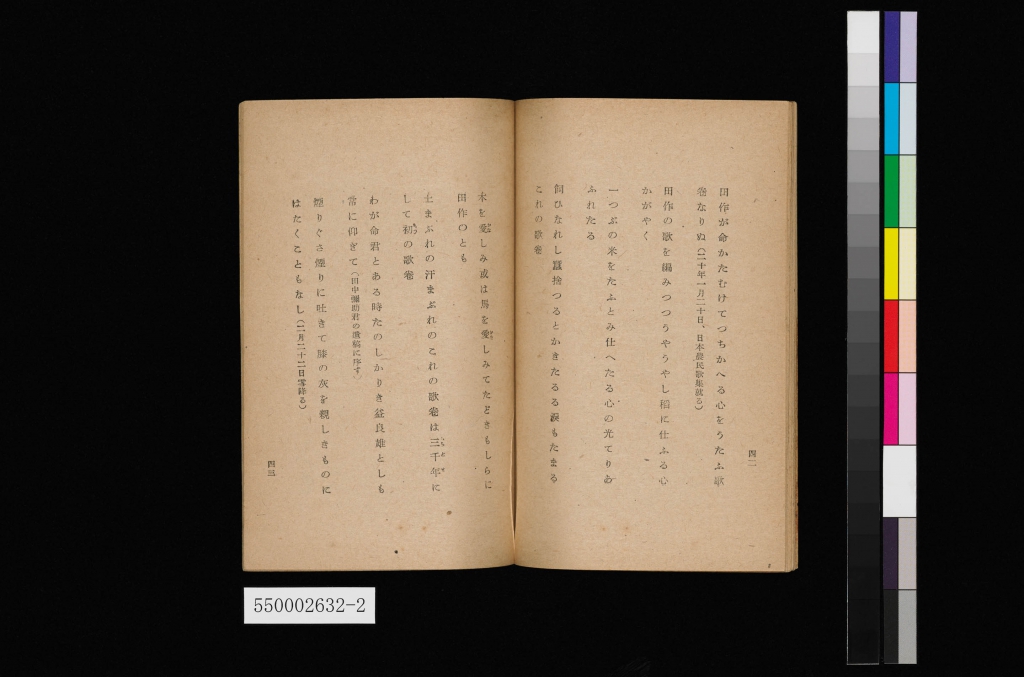 田作が命かたむけてつちかへる心をうたふ歌
巻なりぬ(二十年一月二十日、日本農民歌集就る)
田作の歌を編みつつうやうやし稲に仕ふる心
かがやく
一つぶの米をたふとみ仕へたる心の光てりあ
ふれたる
飼ひなれし蠶捨つるとかきたるる涙もたまる
これの歌巻
四二
木を愛しみ或は馬を愛しみてたどきもしらに
田作のとも
土まぶれの汗まぶれのこれの歌巻は三千年に
して初の歌巻
わが命君とある時たのしかりき益良雄としも
常に仰ぎて(田中彌助君の遺稿に序す)
煙りぐさ煙りに吐きて膝の灰を親しきものに
はたくこともなし(二月二十二日雪降る)
四三
550002632-2